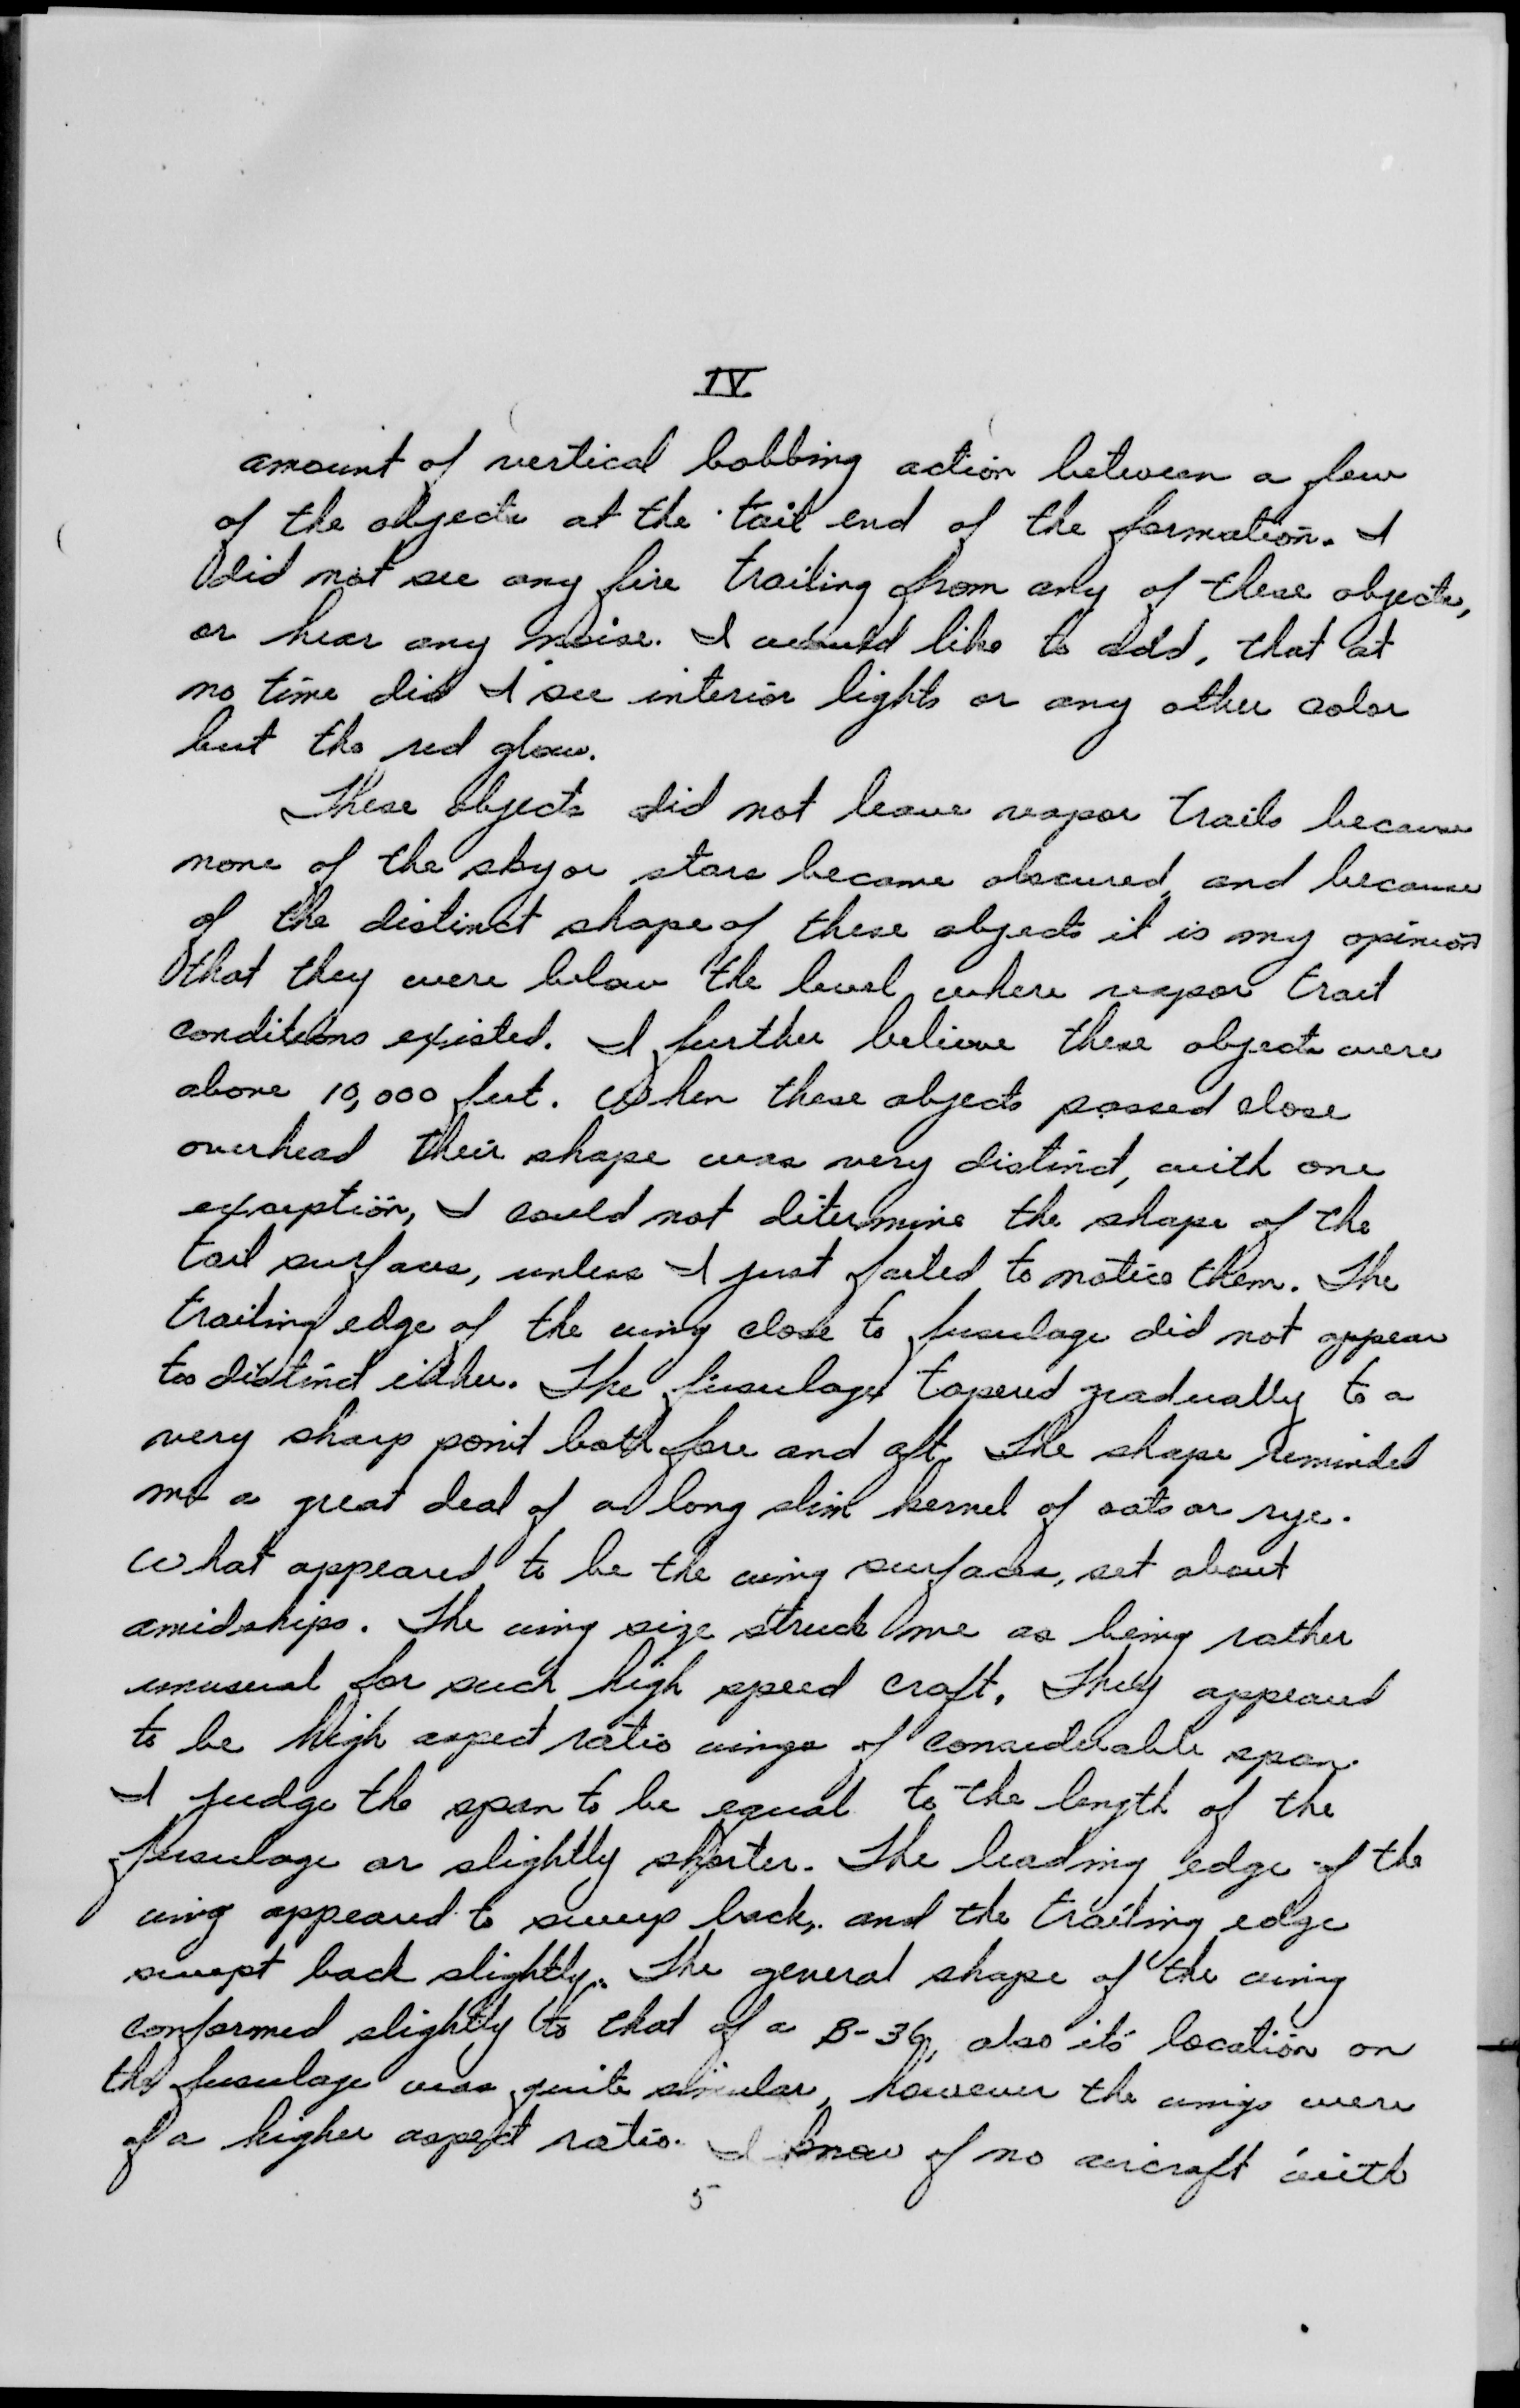 IV
amount of vertical bobbing action between a few
of the objects at the tail end of the formation. I
did not see any fire trailing from any of these objects,
or hear any noise. I would like to add, that at
no time did I see interior lights or any other color
but the red glow.
These objects did not leave vapor trails because
none of the sky or stars became obscured, and because
of the distinct shape of these objects it is my opinion
that they were below the level where vapor trail
conditions existed. I further believe these objects were
above 10,000 feet. When these objects passed close
overhead their shape was very distinct, with one
exception, I could not determine the shape of the
tail surfaces, unless I just failed to notice them. The
trailing edge of the wing close to fusulage did not appear
too distinct either. The fusulage tapered gradually to a
very sharp point both fore and aft. The shape reminded
me a great deal of a long slim kernel of oats or rye.
What appeared to be the wing surfaces, set about
amidships. The wing size struck me as being rather
unusual for such high speed craft. They appeared
to be high aspect ratio wings of considerable span.
I judge the span to be equal to the length of the
fusulage or slightly shorter. The leading edge of the
wing appeared to sweep back, and the trailing edge
swept back slightly. The general shape of the wing
conformed slightly to that of a B-36, also it's location on
the fusulage was quite simular, however the wings were
of a higher aspect ratio. I know of no aircraft with
5